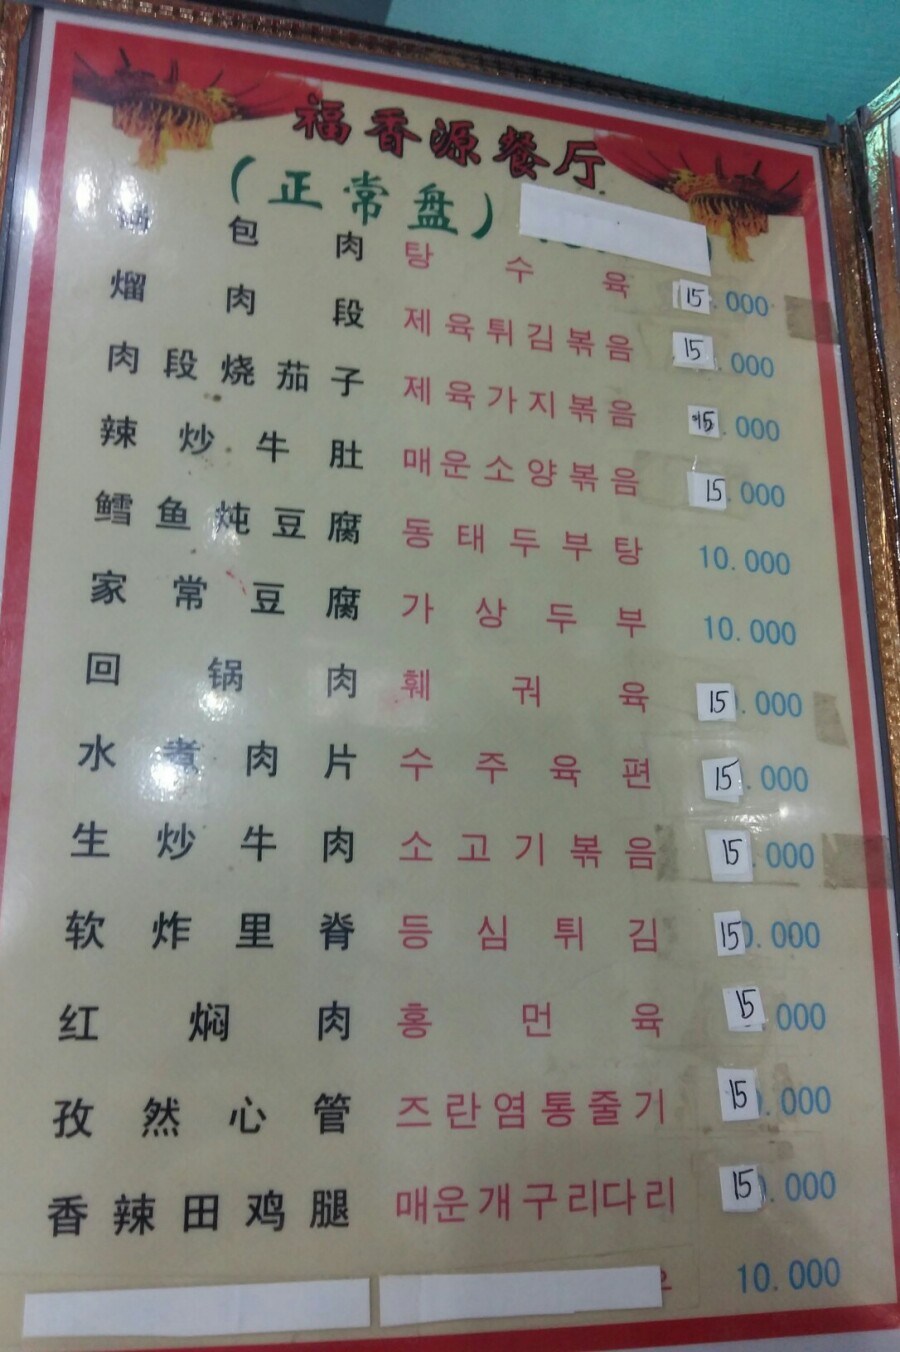 福香源餐厅
(正常盘)
包肉 탕수육 15.000
熘肉段 제육튀김볶음 15.000
肉段烧茄子 제육가지볶음 15.000
辣炒牛肚 매운소양볶음 15.000
鳕鱼炖豆腐 동태두부탕 10.000
家常豆腐 가상두부 10.000
回锅肉 훼궈육 15.000
水煮肉片 수주육편 15.000
生炒牛肉 소고기볶음 15.000
软炸里脊 등심튀김 150.000
红焖肉 홍먼육 15 000
孜然心管 즈란염통줄기 15.000
香辣田鸡腿 매운개구리다리 15.000
10.000